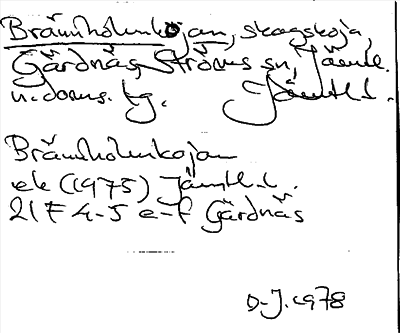 Brännholmkojan, skogskoja,
Gärdnäs, Ströms sn, Jämtl.
n. doms. tg. Jämtl. l.
Brännholmkojan
ek (1975) Jämtl. l.
21 F 4-5 e-f Gärdnäs
D-J. 1978